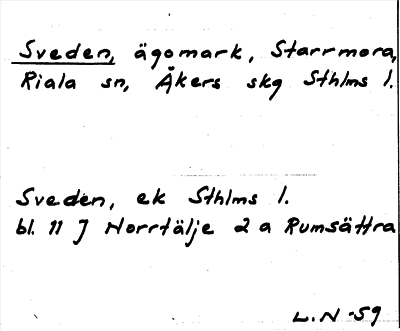 Sveden, ägomark, Starrmora,
Riala sn, Åkers skg Sthlms l.
Sveden, ek Sthlms l.
bl. 11 J Norrtälje 2 a Rumsättra
L.N -59